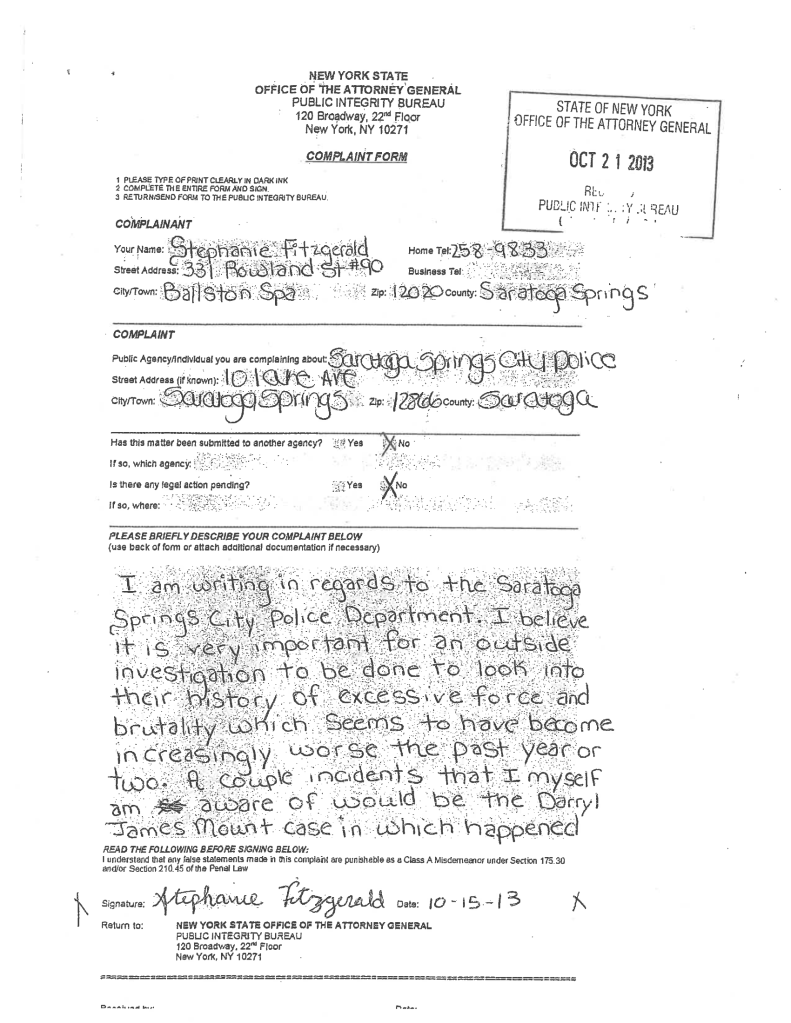 NEW YORK STATE
OFFICE OF THE ATTORNEY GENERAL
PUBLIC INTEGRITY BUREAU
120 Broadway, 22nd Floor
New York, NY 10271
STATE OF NEW YORK
OFFICE OF THE ATTORNEY GENERAL
OCT 21 2013
PUBLIC
COMPLAINT FORM
1 PLEASE TYPE OF PRINT CLEARLY IN DARK INK
2 COMPLETE THE ENTIRE FORM AND SIGN.
3 RETURN/SEND FORM TO THE PUBLIC INTEGRITY BUREAU.
COMPLAINANT
Your Name: Stephanie Fitzgerald Home Tel: 258-9833
Street Address: 331 Rowland St #90 Business Tel:
City/Town: Ballston Spa Zip: 12020 County: Saratoga Springs
COMPLAINT
Public Agency/Individual you are complaining about: Saratoga Springs City Police
Street Address (if known): 10 lake AVE
City/Town: Saratoga Springs Zip: 12866 County: Saratoga
Has this matter been submitted to another agency? Yes X No
If so, which agency:
Is there any legal action pending? Yes X No
If so, where:
PLEASE BRIEFLY DESCRIBE YOUR COMPLAINT BELOW
(use back of form or attach additional documentation if necessary)
I am writing in regards to the Saratoga
Springs City Police Department. I believe
it is very important for an outside
investigation to be done to look into
their history of excessive force and
brutality which seems to have become
increasingly worse the past year or
two. A couple incidents that I myself
am aware of would be the Darryl
James Mount case in which happened
READ THE FOLLOWING BEFORE SIGNING BELOW:
I understand that any false statements made in this complaint are punishable as a Class A Misdemeanor under Section 175.30
and/or Section 210.45 of the Penal Law
X Signature: Stephanie Fitzgerald Date: 10-15-13 X
Return to: NEW YORK STATE OFFICE OF THE ATTORNEY GENERAL
PUBLIC INTEGRITY BUREAU
120 Broadway, 22nd Floor
New York, NY 10271
Received by: Date: